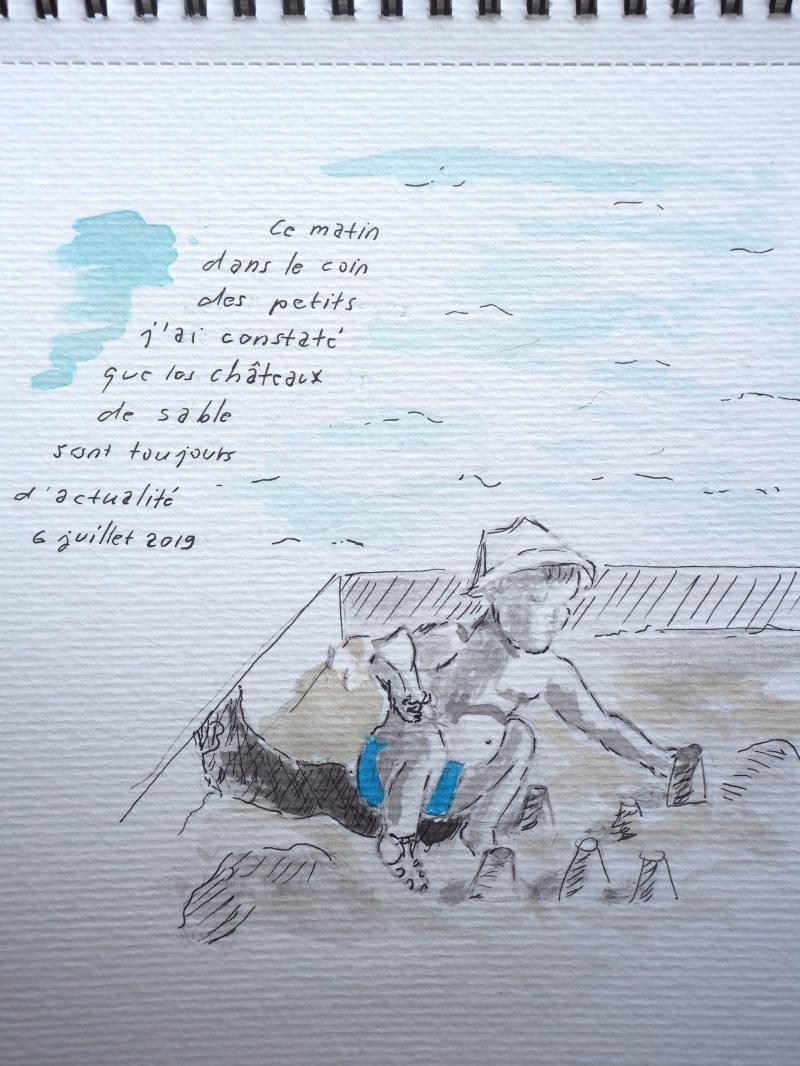 Ce matin
dans le coin
des petits
j'ai constaté
que les châteaux
de sable
sont toujours
d'actualité
6 juillet 2019